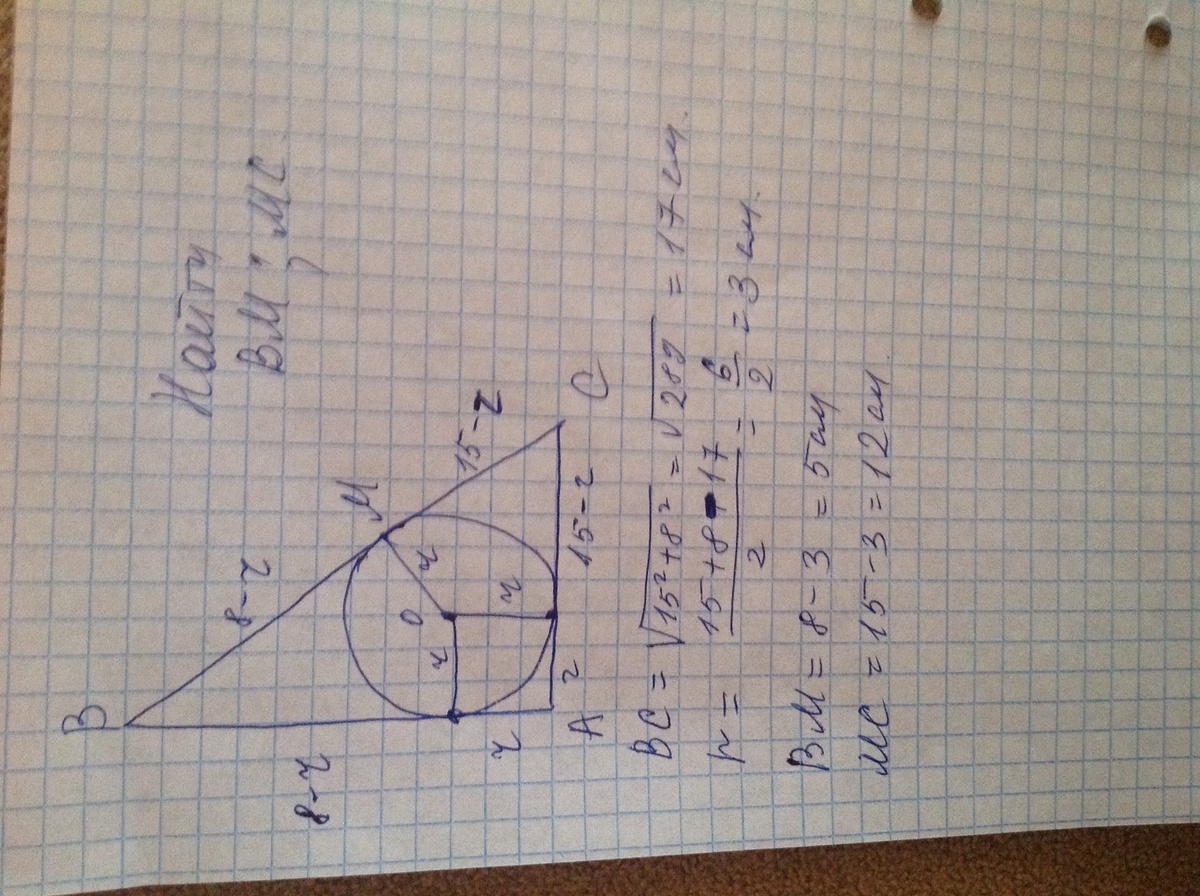 Найти
BM; MC
B
8-r
8-r
M
15-r
O
r
r
r
r
r
A
15-r
C
BC = √15²+8² = √289 = 17 см.
r = 15+8-17/2 = 6/2 = 3 см.
BM = 8-3 = 5 см
MC = 15-3 = 12 см